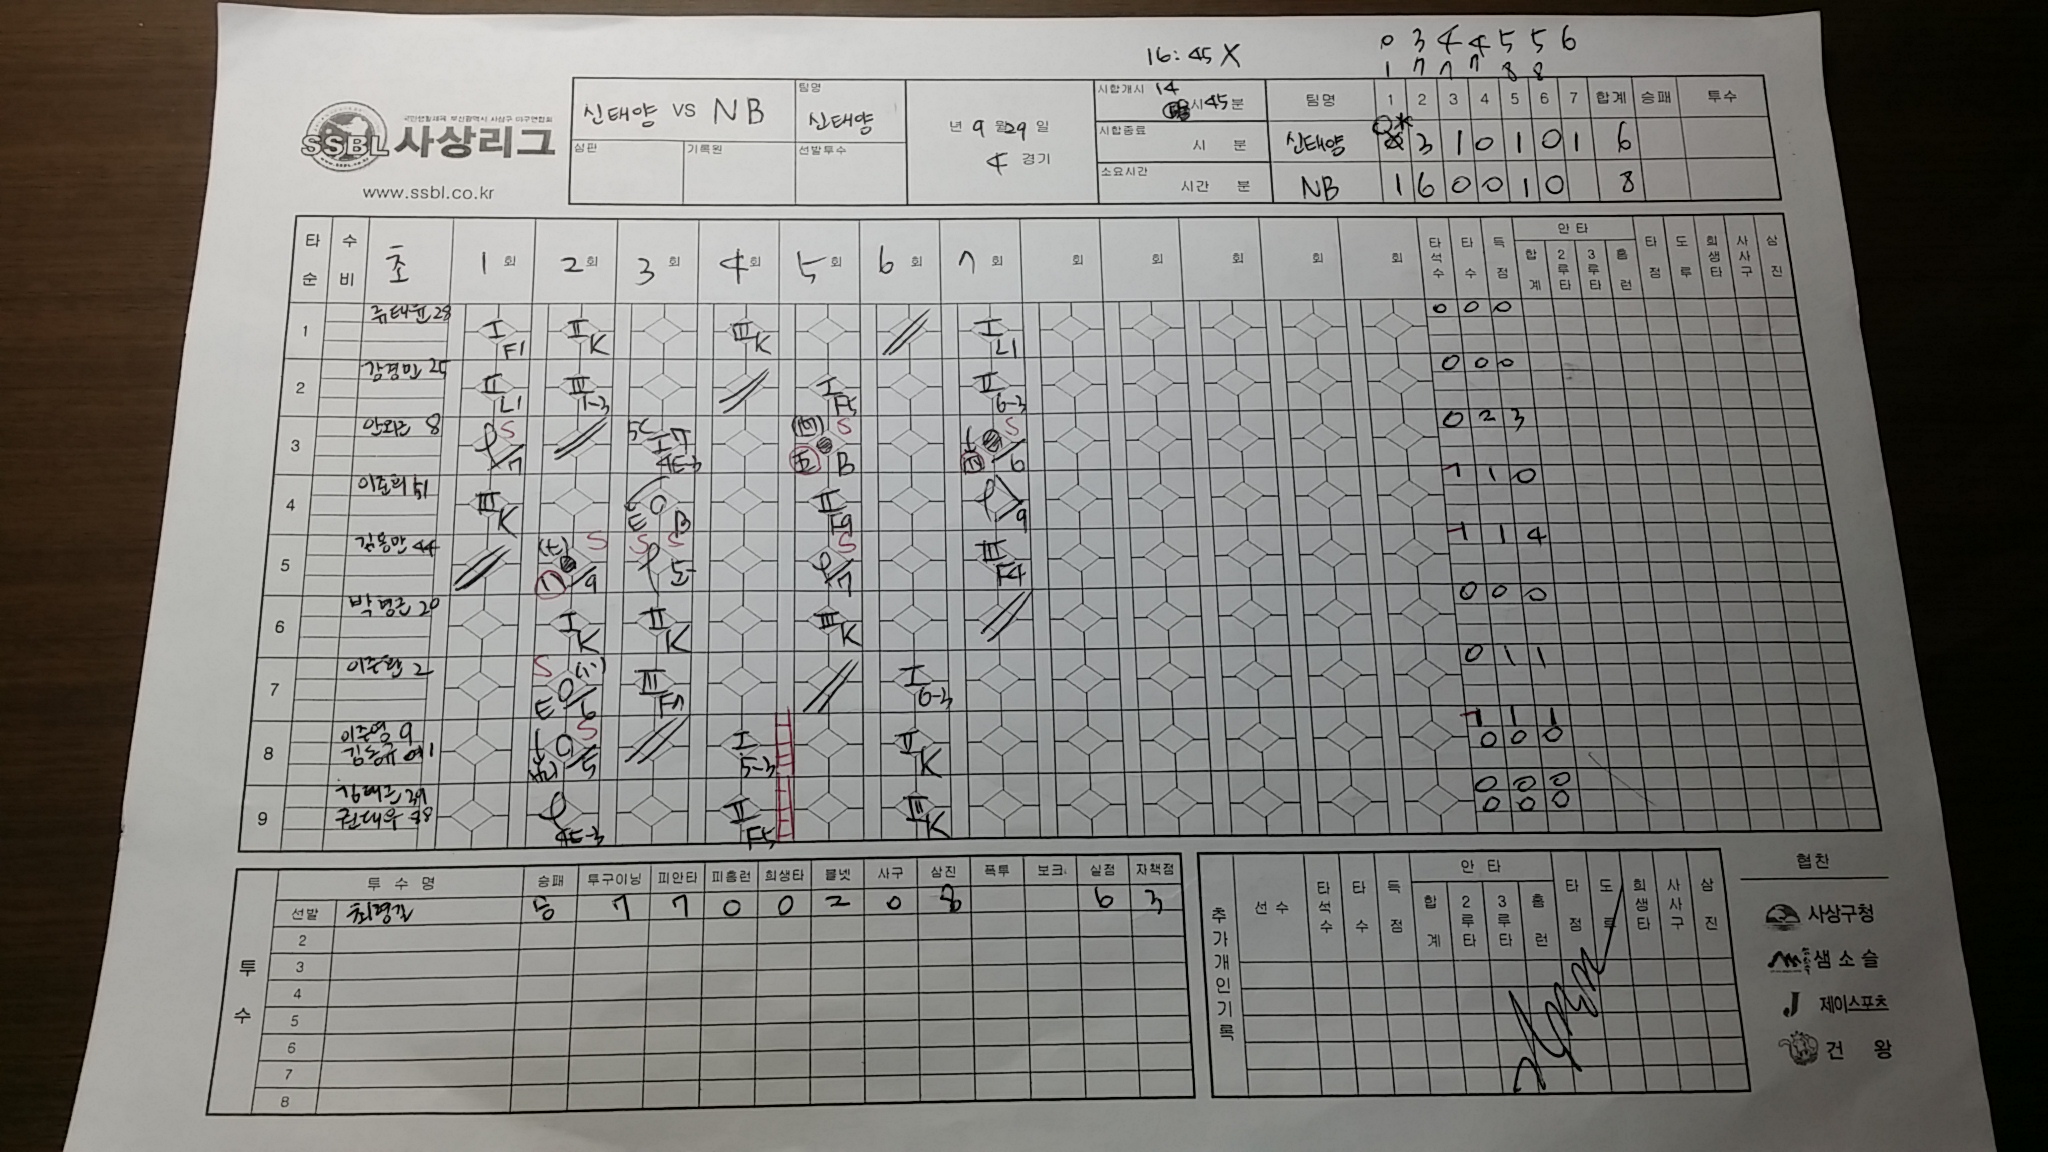 16:45 X
0 3 4 4 5 5 6
1 7 7 7 8 8
국민생활체육 부산광역시 사상구 야구연합회
SSBL 사상리그
www.ssbl.co.kr
신태양 VS NB
팀명
신태양
심판
기록원
선발투수
년 9 월 29 일
4 경기
시합개시 14 시 45 분
시합종료 시 분
소요시간 시간 분
팀명 1 2 3 4 5 6 7 합계 승패 투수
신태양 0 3 1 0 1 0 1 6
NB 1 6 0 0 1 0 8
타순 수비 초 1회 2회 3회 4회 5회 6회 7회 회 회 회 회 회 타석수 타수 득점 안타 합계 2루타 3루타 홈런 타점 도루 희생타 사사구 삼진
1 류태윤 28
I F1 II K III K I L1
0 0 0
2 감경민 25
II L1 III 1-3 I F5 II 6-3
0 0 0
3 8
S 7 I 4E-3 S B S 6
0 2 3
4 51
III K E B II F9 9
1 1 0
5 김용만 44
S 9 S S 5 S 7 III F4
1 1 4
6 박명근 20
I K II K III K
0 0 0
7 2
S E 6 III F7 I 6-3
0 1 1
8 이주영 9
김동규 01
S 5 I 5-3 II K
1 1 1
0 0 0
9
권대우 38
4E-3 II F5 III K
0 0 0
0 0 0
투수
투수명 승패 투구이닝 피안타 피홈런 희생타 볼넷 사구 삼진 폭투 보크 실점 자책점
선발 최평길 승 7 7 0 0 2 0 8 6 3
2
3
4
5
6
7
8
추가개인기록
선수 타석수 타수 득점 안타 합계 2루타 3루타 홈런 타점 도루 희생타 사사구 삼진
협찬
사상구청
샘소슬
J 제이스포츠
건왕